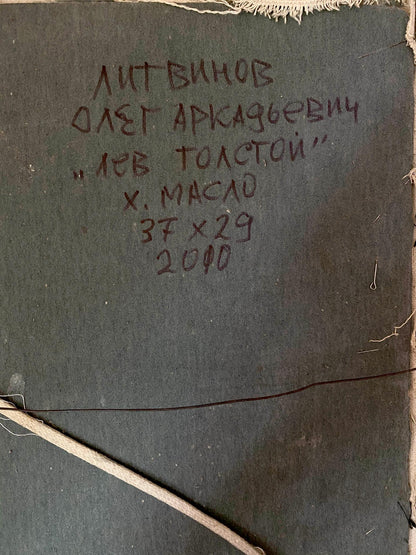 ЛИТВИНОВ
ОЛЕГ АРКАДЬЕВИЧ
„ЛЕВ ТОЛСТОЙ”
Х. МАСЛО
37 х 29
2010